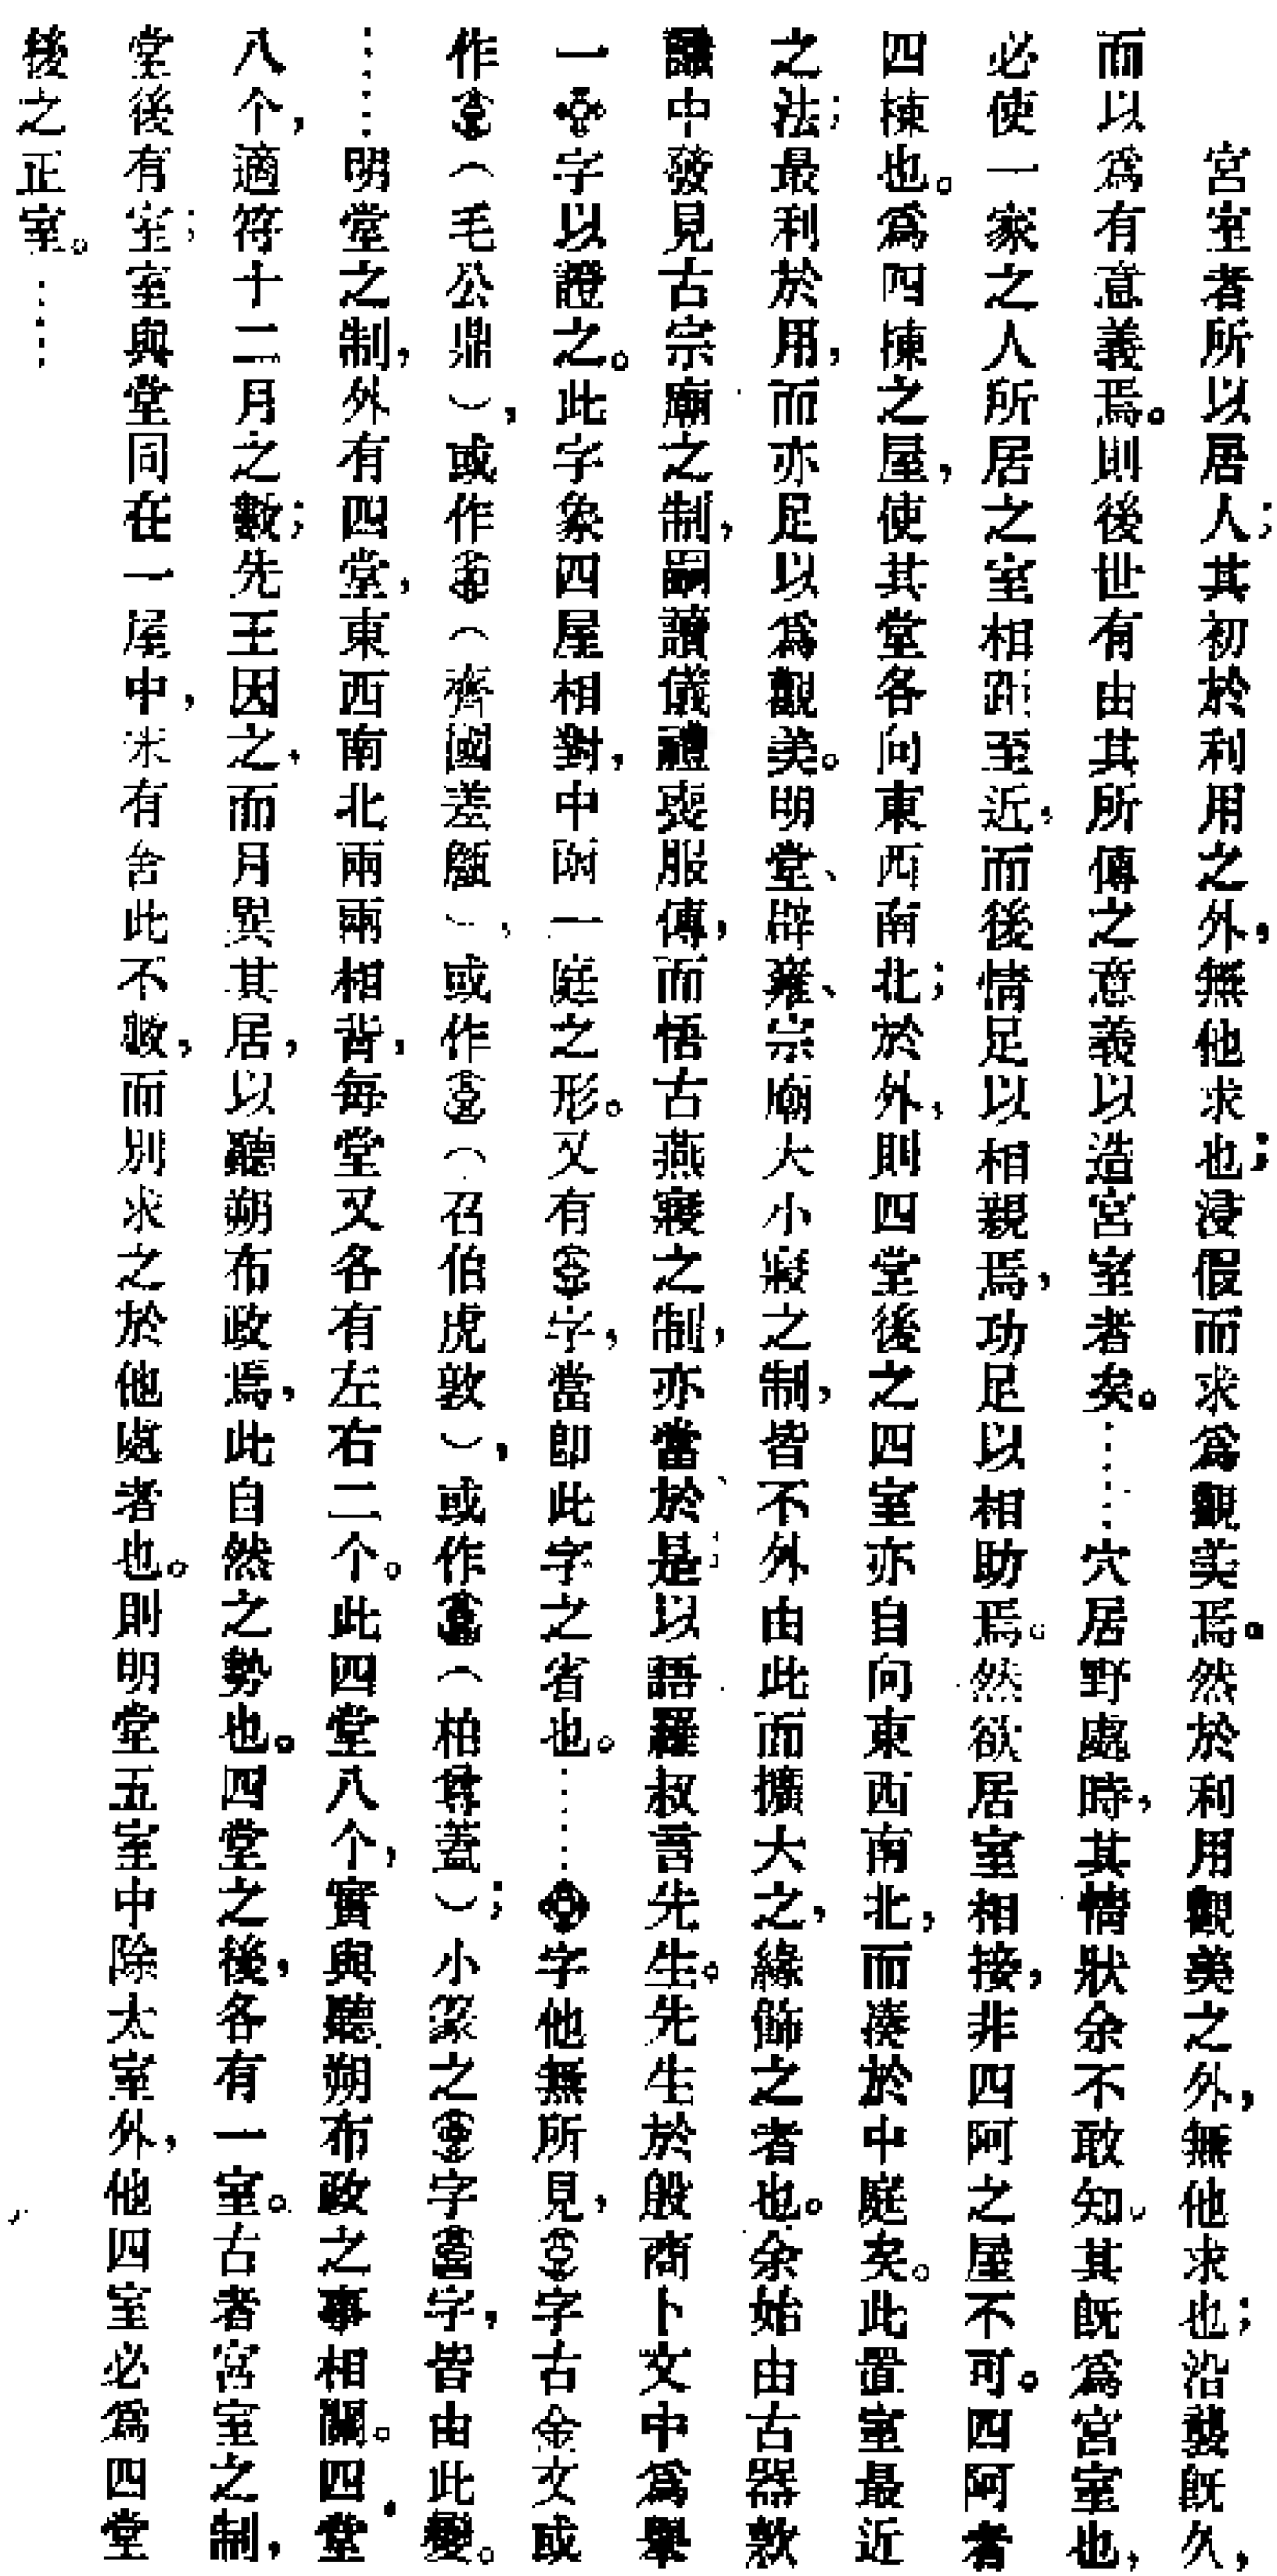 宮室者所以居人；其初於利用之外，無他求也；浸假而求爲觀美焉。然於利用觀美之外，無他求也；沿襲既久，
而以爲有意義焉。則後世有由其所傳之意義以造宮室者矣。……穴居野處時，其情狀余不敢知。其既爲宮室也，
必使一家之人所居之室相距至近，而後情足以相親焉，功足以相助焉。然欲居室相接，非四阿之屋不可。四阿者
四棟也。爲四棟之屋，使其堂各向東西南北；於外，則四堂後之四室亦自向東西南北，而湊於中庭矣。此置室最近
之法；最利於用，而亦足以爲觀美。明堂、辟雍、宗廟大小寢之制，皆不外由此而擴大之，緣飾之者也。余始由古器款
識中發見古宗廟之制，嗣讀儀禮喪服傳，而悟古燕寢之制，亦當於是；以語羅叔言先生。先生於殷商卜文中爲舉
一字以證之。此字象四屋相對，中函一庭之形。又有字，當卽此字之省也。……字他無所見，字古金文或
作（毛公鼎），或作（齊國差𦉜），或作（召伯虎敦），或作（柏尊蓋）；小篆之字字，皆由此變。
……明堂之制，外有四堂，東西南北兩兩相背，每堂又各有左右二个。此四堂八个，實與聽朔布政之事相關。四堂
八个，適符十二月之數；先王因之，而月異其居，以聽朔布政焉，此自然之勢也。四堂之後，各有一室。古者宮室之制，
堂後有室；室與堂同在一屋中，未有舍此不數，而別求之於他處者也。則明堂五室中除太室外，他四室必爲四堂
後之正室。……